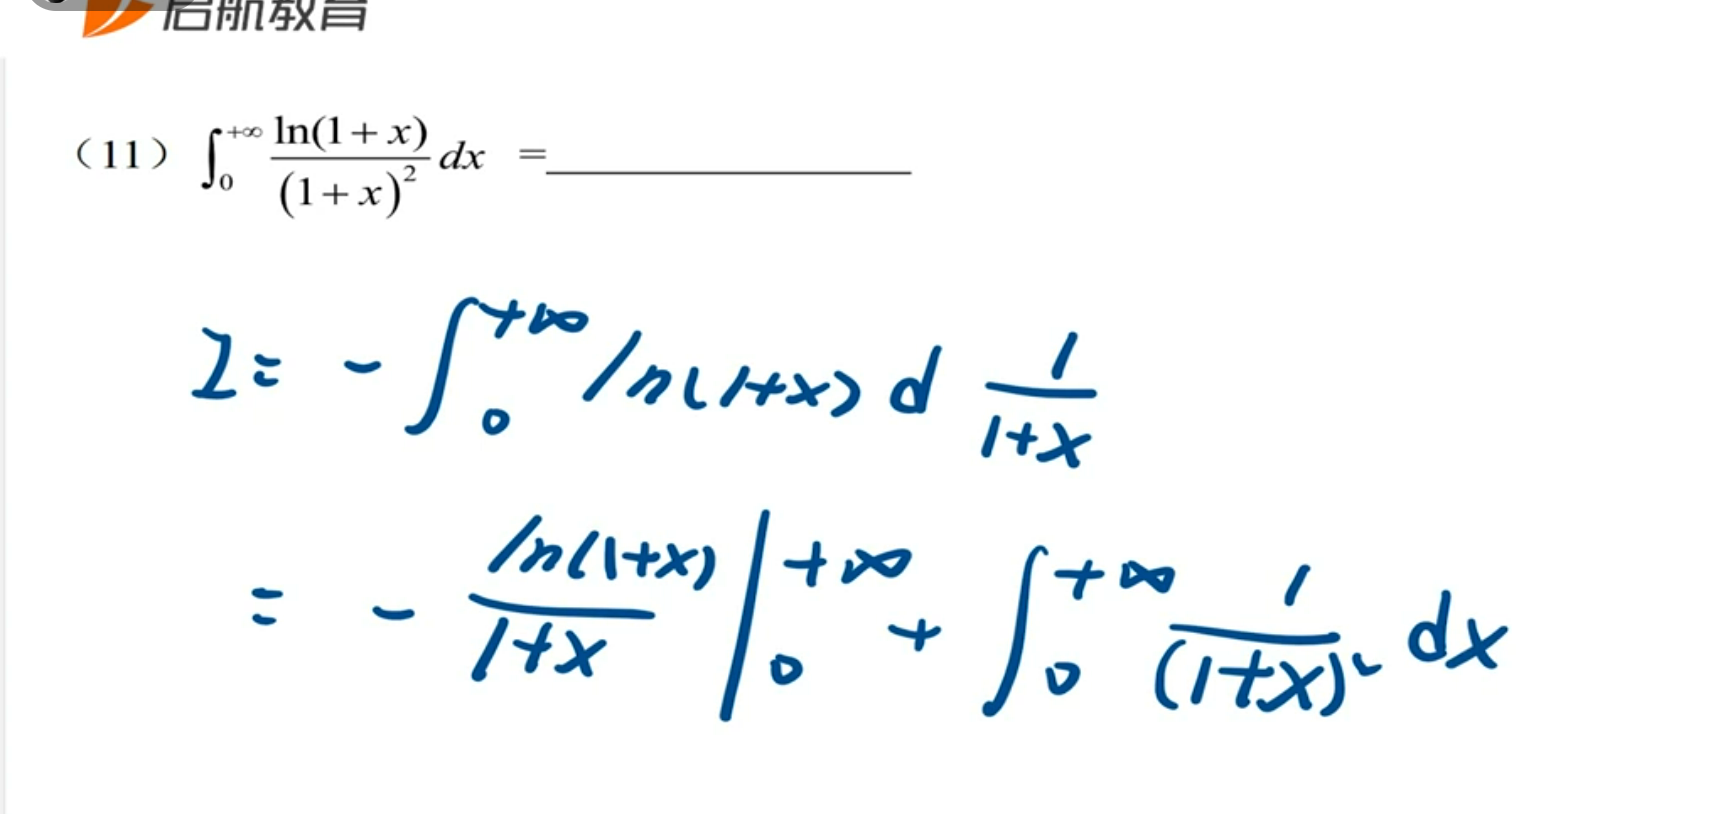 启航教育
(11) ∫₀^{+∞} ln(1+x)/(1+x)² dx = ________
I = - ∫₀^{+∞} ln(1+x) d 1/(1+x)
= - ln(1+x)/(1+x) |₀^{+∞} + ∫₀^{+∞} 1/(1+x)² dx